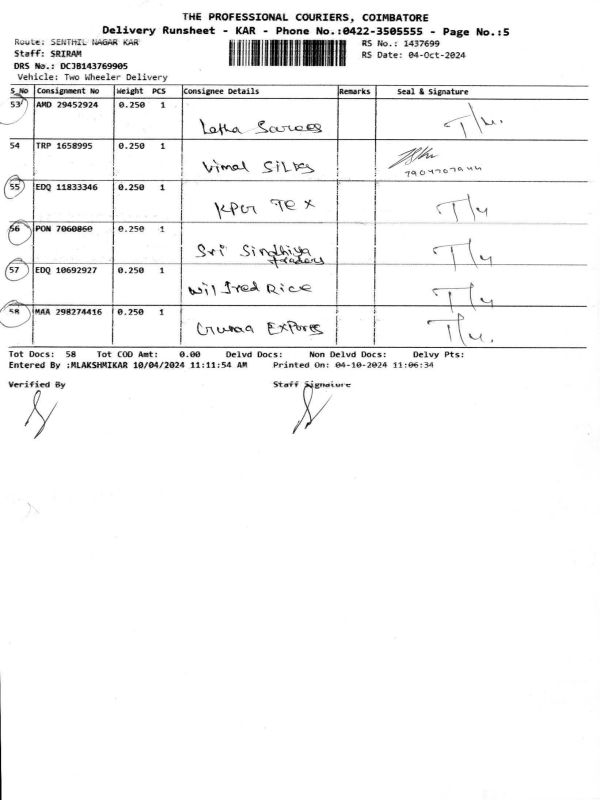 THE PROFESSIONAL COURIERS, COIMBATORE
Delivery Runsheet - KAR - Phone No.:0422-3505555 - Page No.:5
Route: SENTHIL NAGAR KAR
RS No.: 1437699
Staff: SRIRAM
RS Date: 04-Oct-2024
DRS No.: DCJB143769905
Vehicle: Two Wheeler Delivery
S_No Consignment No Weight PCS Consignee Details Remarks Seal & Signature
53 AMD 29452924 0.250 1
Latha Sarees T/u.
54 TRP 1658995 0.250 1
Vimal SiLks
55 EDQ 11833346 0.250 1
KPG TEX T/u
56 PON 7060860 0.250 1
Sri Sindhiya Traders T/u
57 EDQ 10692927 0.250 1
Wilfred Rice T/u
58 MAA 298274416 0.250 1
Gunaa Expores T/u.
Tot Docs: 58 Tot COD Amt: 0.00 Delvd Docs: Non Delvd Docs: Delvy Pts:
Entered By :MLAKSHMIKAR 10/04/2024 11:11:54 AM Printed On: 04-10-2024 11:06:34
Verified By Staff Signature